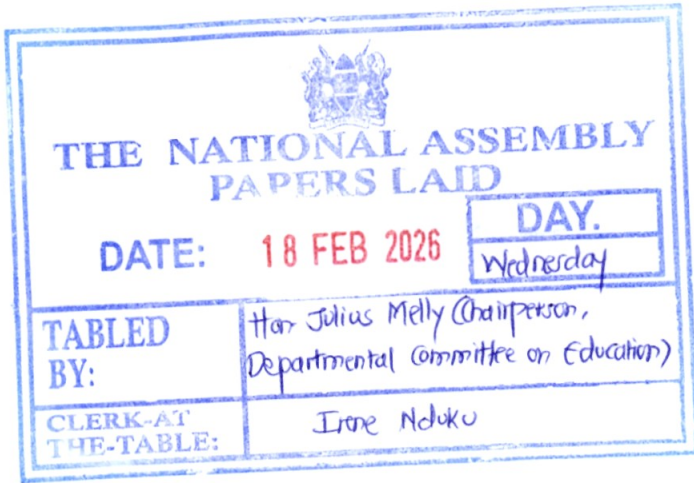 THE NATIONAL ASSEMBLY
PAPERS LAID
DATE: 18 FEB 2026
DAY.
Wednesday
TABLED BY:
Hon Julius Melly (Chairperson,
Departmental Committee on Education)
CLERK-AT
THE-TABLE:
Irene Nduku